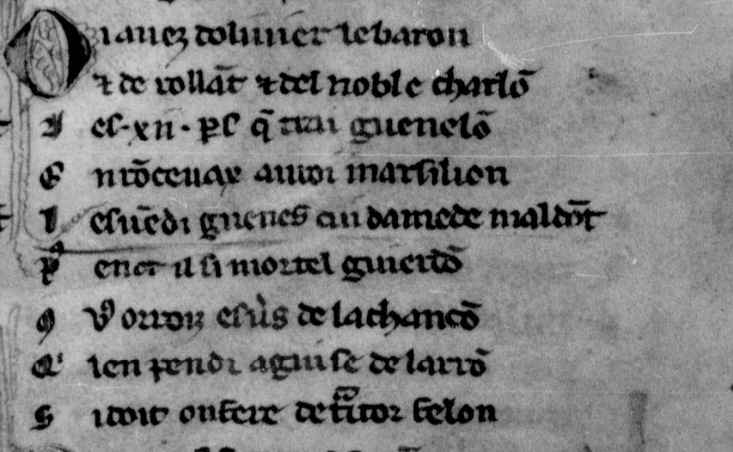 Oi auez doliuier le baron
⁊ de rollāt ⁊ del noble charlō
Les .xii. ꝑs q̄ trai guenelō
En rōceuax au roi marsilion
Les uēdi guenes cui damede maldōt
Puis en ot il si mortel guierdō
Vos orroiz es uers de la chancō
Qͥ l en pendi a guise de larrō
Si doit on fere de t̄itor felon